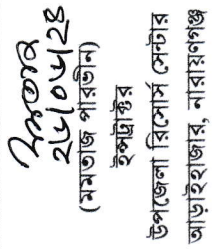 মমতাজ
২৮/০৮/২৪
(মমতাজ পারভীন)
ইন্সট্রাক্টর
উপজেলা রিসোর্স সেন্টার
আড়াইহাজার, নারায়ণগঞ্জ